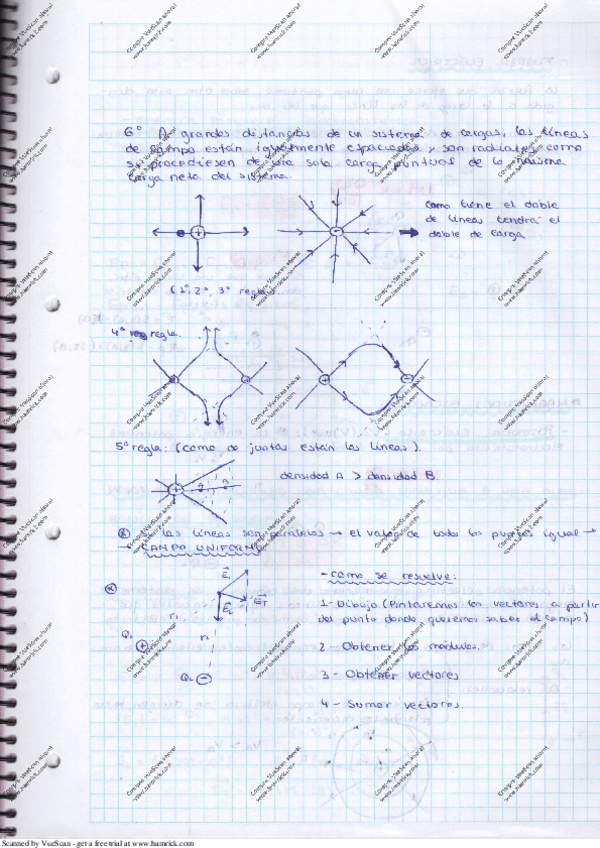 6º A grandes distancias de un sistema de cargas, las líneas
de campo están igualmente espaciadas y son radiales como
si procediesen de una sola carga puntual de la misma
carga neta del sistema.
como tiene el doble
de líneas tendrá el
doble de carga
(1º, 2º, 3º regla)
4º regla.
5º regla: (como de juntas están las líneas).
densidad A > densidad B.
Si las líneas son paralelas → el valor de todos los puntos igual →
→ CAMPO UNIFORME
- como se resuelve:
1- Dibujo (Pintaremos los vectores a partir
del punto donde queremos saber el campo)
2- Obtener los módulos.
3- Obtener vectores
4- Sumar vectores.
E₁
E₂
E_T
r₁
Q₁
Q₂
Compre VueScan ahora!
www.hamrick.com
Scanned by VueScan - get a free trial at www.hamrick.com